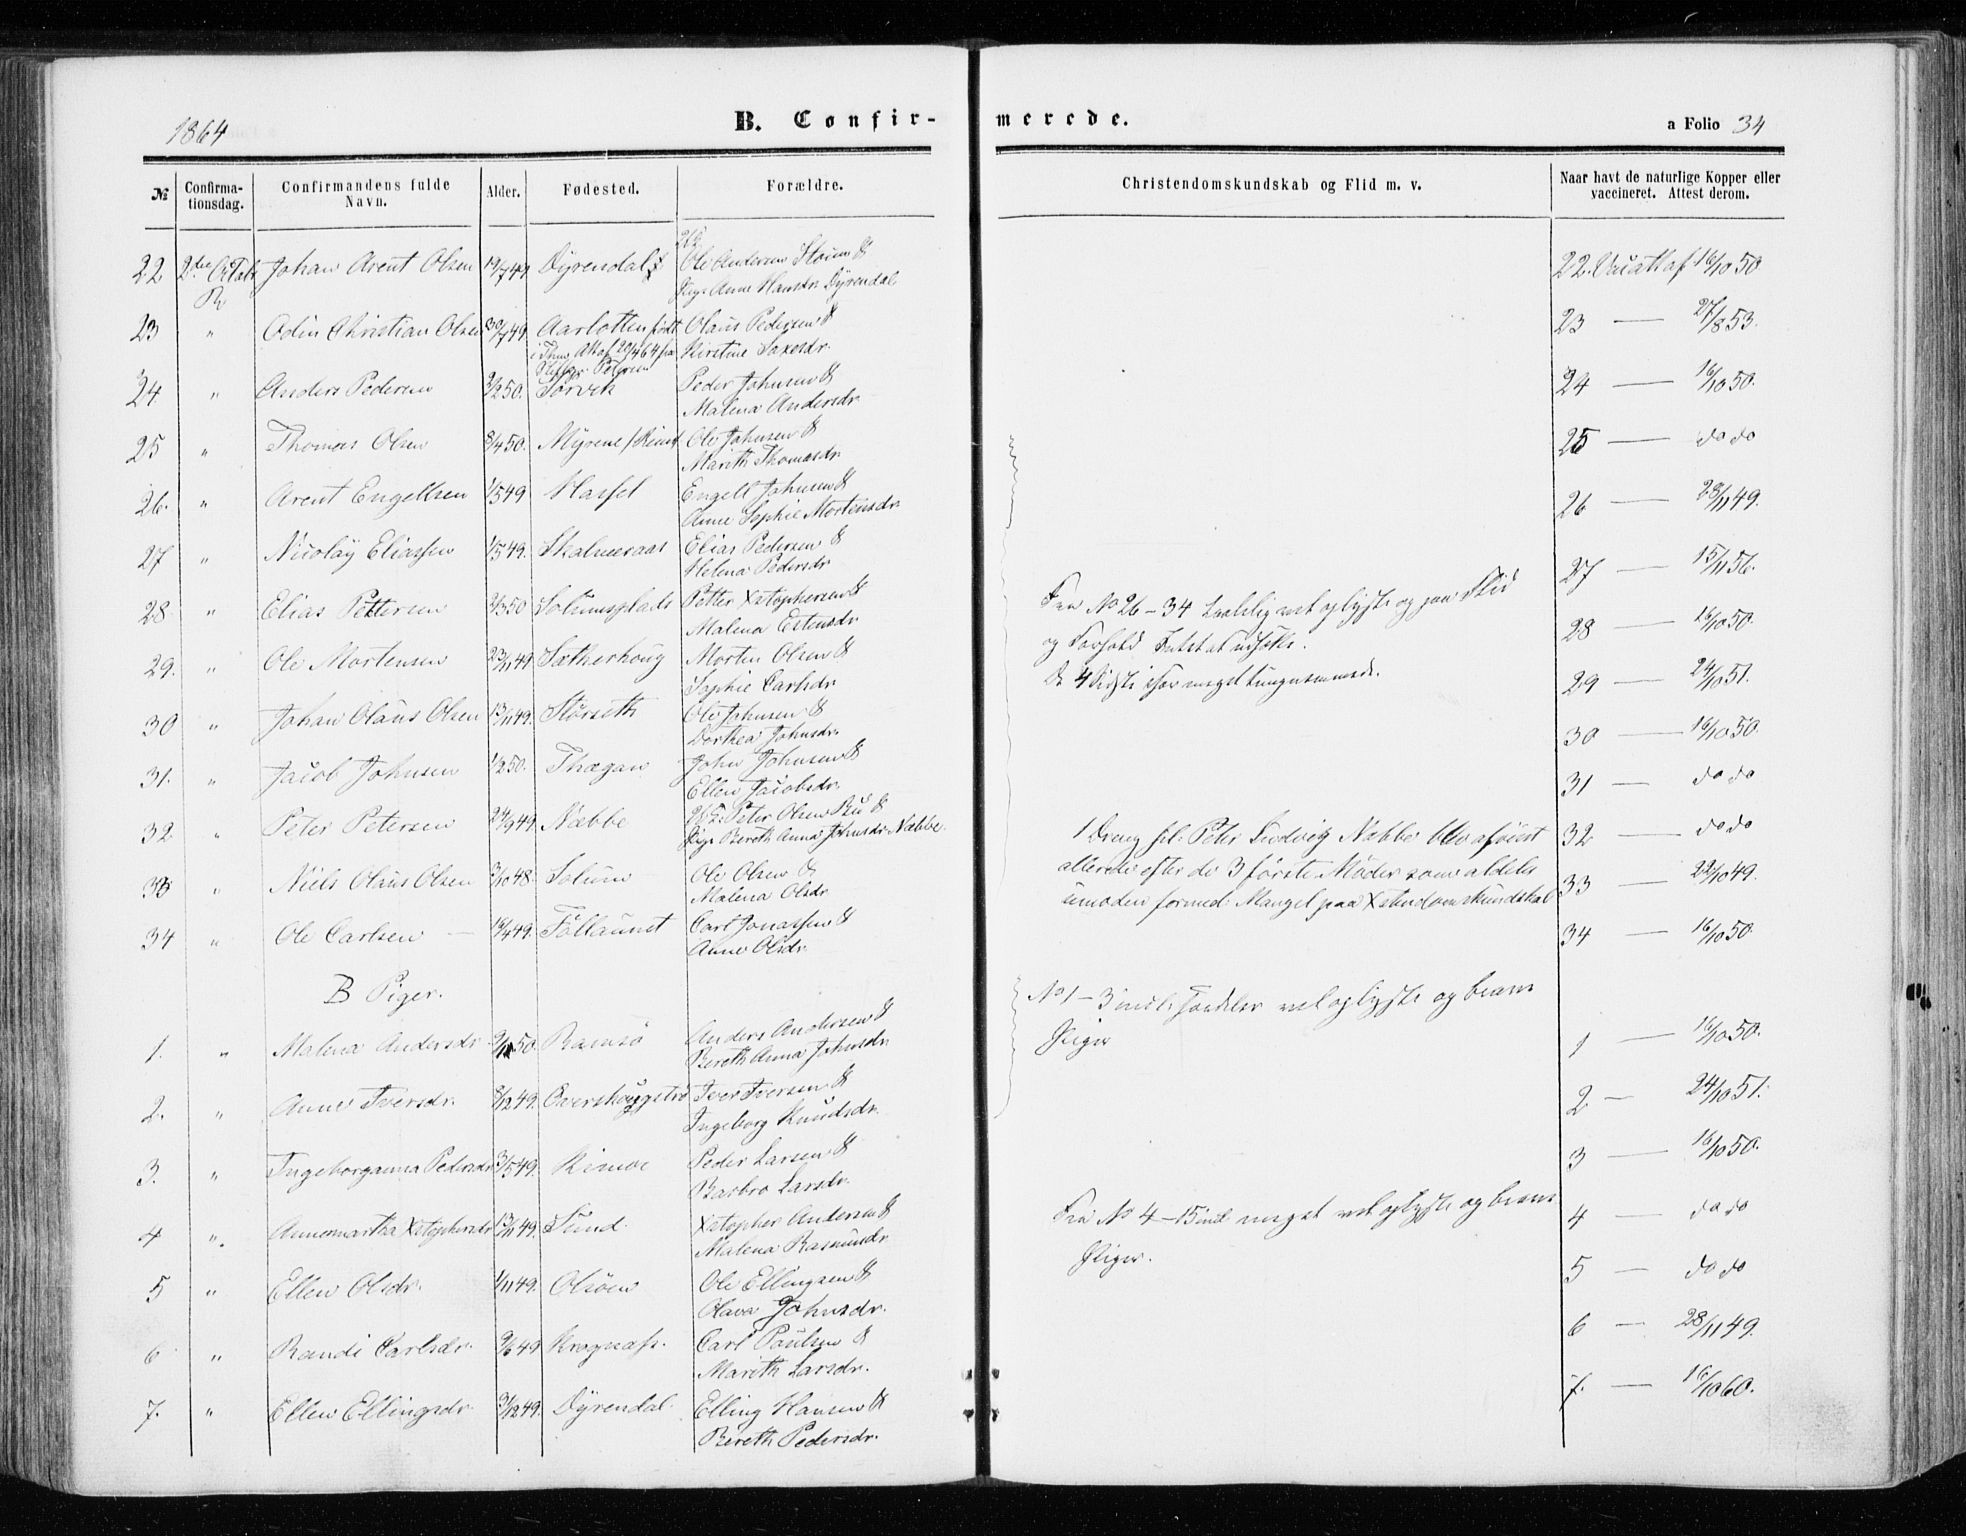 1864
B. Confir-
merede.
a Folio 34
№
Confirma-
tionsdag.
Confirmandens fulde
Navn.
Alder.
Fødested.
Forældre.
Christendomskundskab og Flid m. v.
Naar havt de naturlige Kopper eller
vaccineret. Attest derom.
22 Johan Arent Olsen 19/7 49 Dyrendal Ole Andersen &
Anne Hansdr Dyrendal
22. 16/10 50
23 " Odin Christian Olsen 30/7 49 Olaus Pedersen &
Kirstine
23 — 27/8 53.
24 " Anders Pedersen 2/2 50. Sørvik Peder Johnsen &
Malena Andersdr.
24 — 16/10 50.
25 " Thomas Olsen 8/4 50. Myrene Ole Johnsen &
Marith Thomasdr.
25 — do do
26. " Arent Engellsen 1/5 49 Hassel Engell Johnsen &
Anne Sophie Mortensdr.
26 — 28/11 49.
27 " Nicolay Eliassen 1/5 49. Skalmeraas Elias Pedersen &
Helena Pedersdr
27 — 15/11 56.
28 " Elias Pettersen 2/3 50 Solumsplads Petter Xstophersen &
Malena Estensdr.
28 — 16/10 50.
29. " Ole Mortensen 23/11 49. Sætherhoug Morten Olsen &
Sophie Carlsdr.
29 — 24/10 51.
Fra No 26 – 34 vel oplyste og Flid
og Forhold
De 4 Sidste meget tungnemmede.
30 " Johan Olaus Olsen 13/11 49. Størseth Ole Johnsen &
Dorthea Johnsdr.
30 — 16/10 50.
31. " Jacob Johnsen 1/2 50. Thægan John Johnsen &
Ellen Jacobsdr.
31 — do do
32 " Peter Petersen 24/9 49. Næbbe Peter Olsen &
Pige Bereth Anna Johnsdr. Næbbe.
32 — do do
33 " Niels Olaus Olsen 3/10 48. Solum Ole Olsen &
Malena Olsdr
33 — 22/10 49.
34 " Ole Carlsen — 4 49. Carl Jonassen &
Anne Olsdr.
34 — 16/10 50.
1 Dreng Peter Ludvig Næbbe blev afviist
allerede efter de 3 første Møder som aldeles
umoden formed. Mangel paa Xstendomskundskab
B Piger.
1. " Malena Andersdr. 50. Ramsø Anders Andersen &
Bereth Anna Johnsdr.
1 — 16/10 50.
No 1 – 3 vel oplyste og brave
Piger
2. " Anne Iversdr. 8/12 49. Iver Iversen &
Ingeborg Knudsdr.
2 — 24/10 51.
3. " Ingeborganna Pedersdr 3/5 49. Kimoe Peder Larsen &
Barbro Larsdr.
3 — 16/10 50.
4 " Annemartha Xstophersdr 13/11 49. Sund Xstopher Andersen &
Malena Rasmusdr.
4 — do do
Fra No 4 – 15 meget vel oplyste og brave
Piger.
5 " Ellen Olsdr. 1/11 49. Olsøen Ole Ellingsen &
Olava Johnsdr.
5 — do do
6 " Randi Carlsdr. 9/6 49 Carl Paulsen &
Marith Larsdr.
6 — 28/11 49.
7. " Ellen Ellingsdr. 3/12 49. Dyrendal Elling Hansen &
Bereth Pedersdr.
7. — 16/10 60.